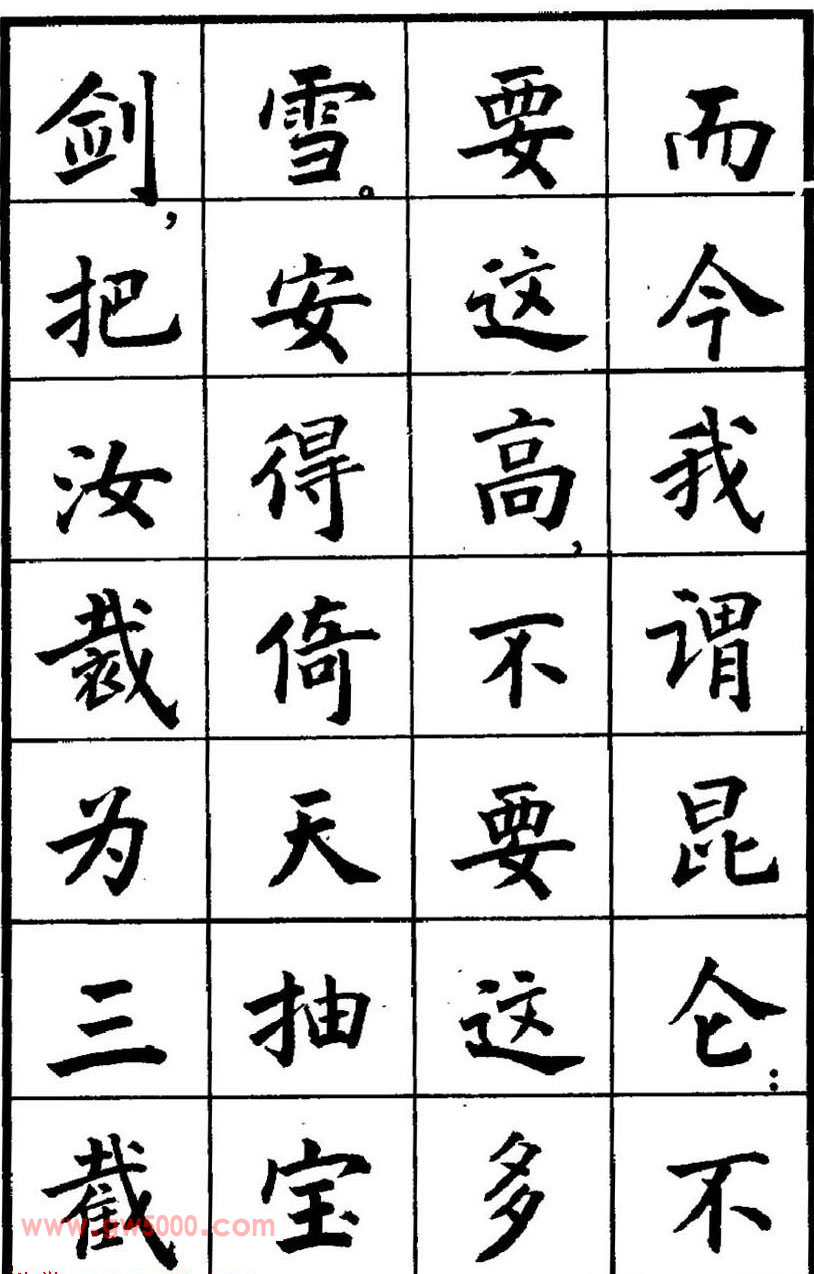 而今我谓昆仑：不
要这高，不要这多
雪。安得倚天抽宝
剑，把汝裁为三截
www.gw5000.com